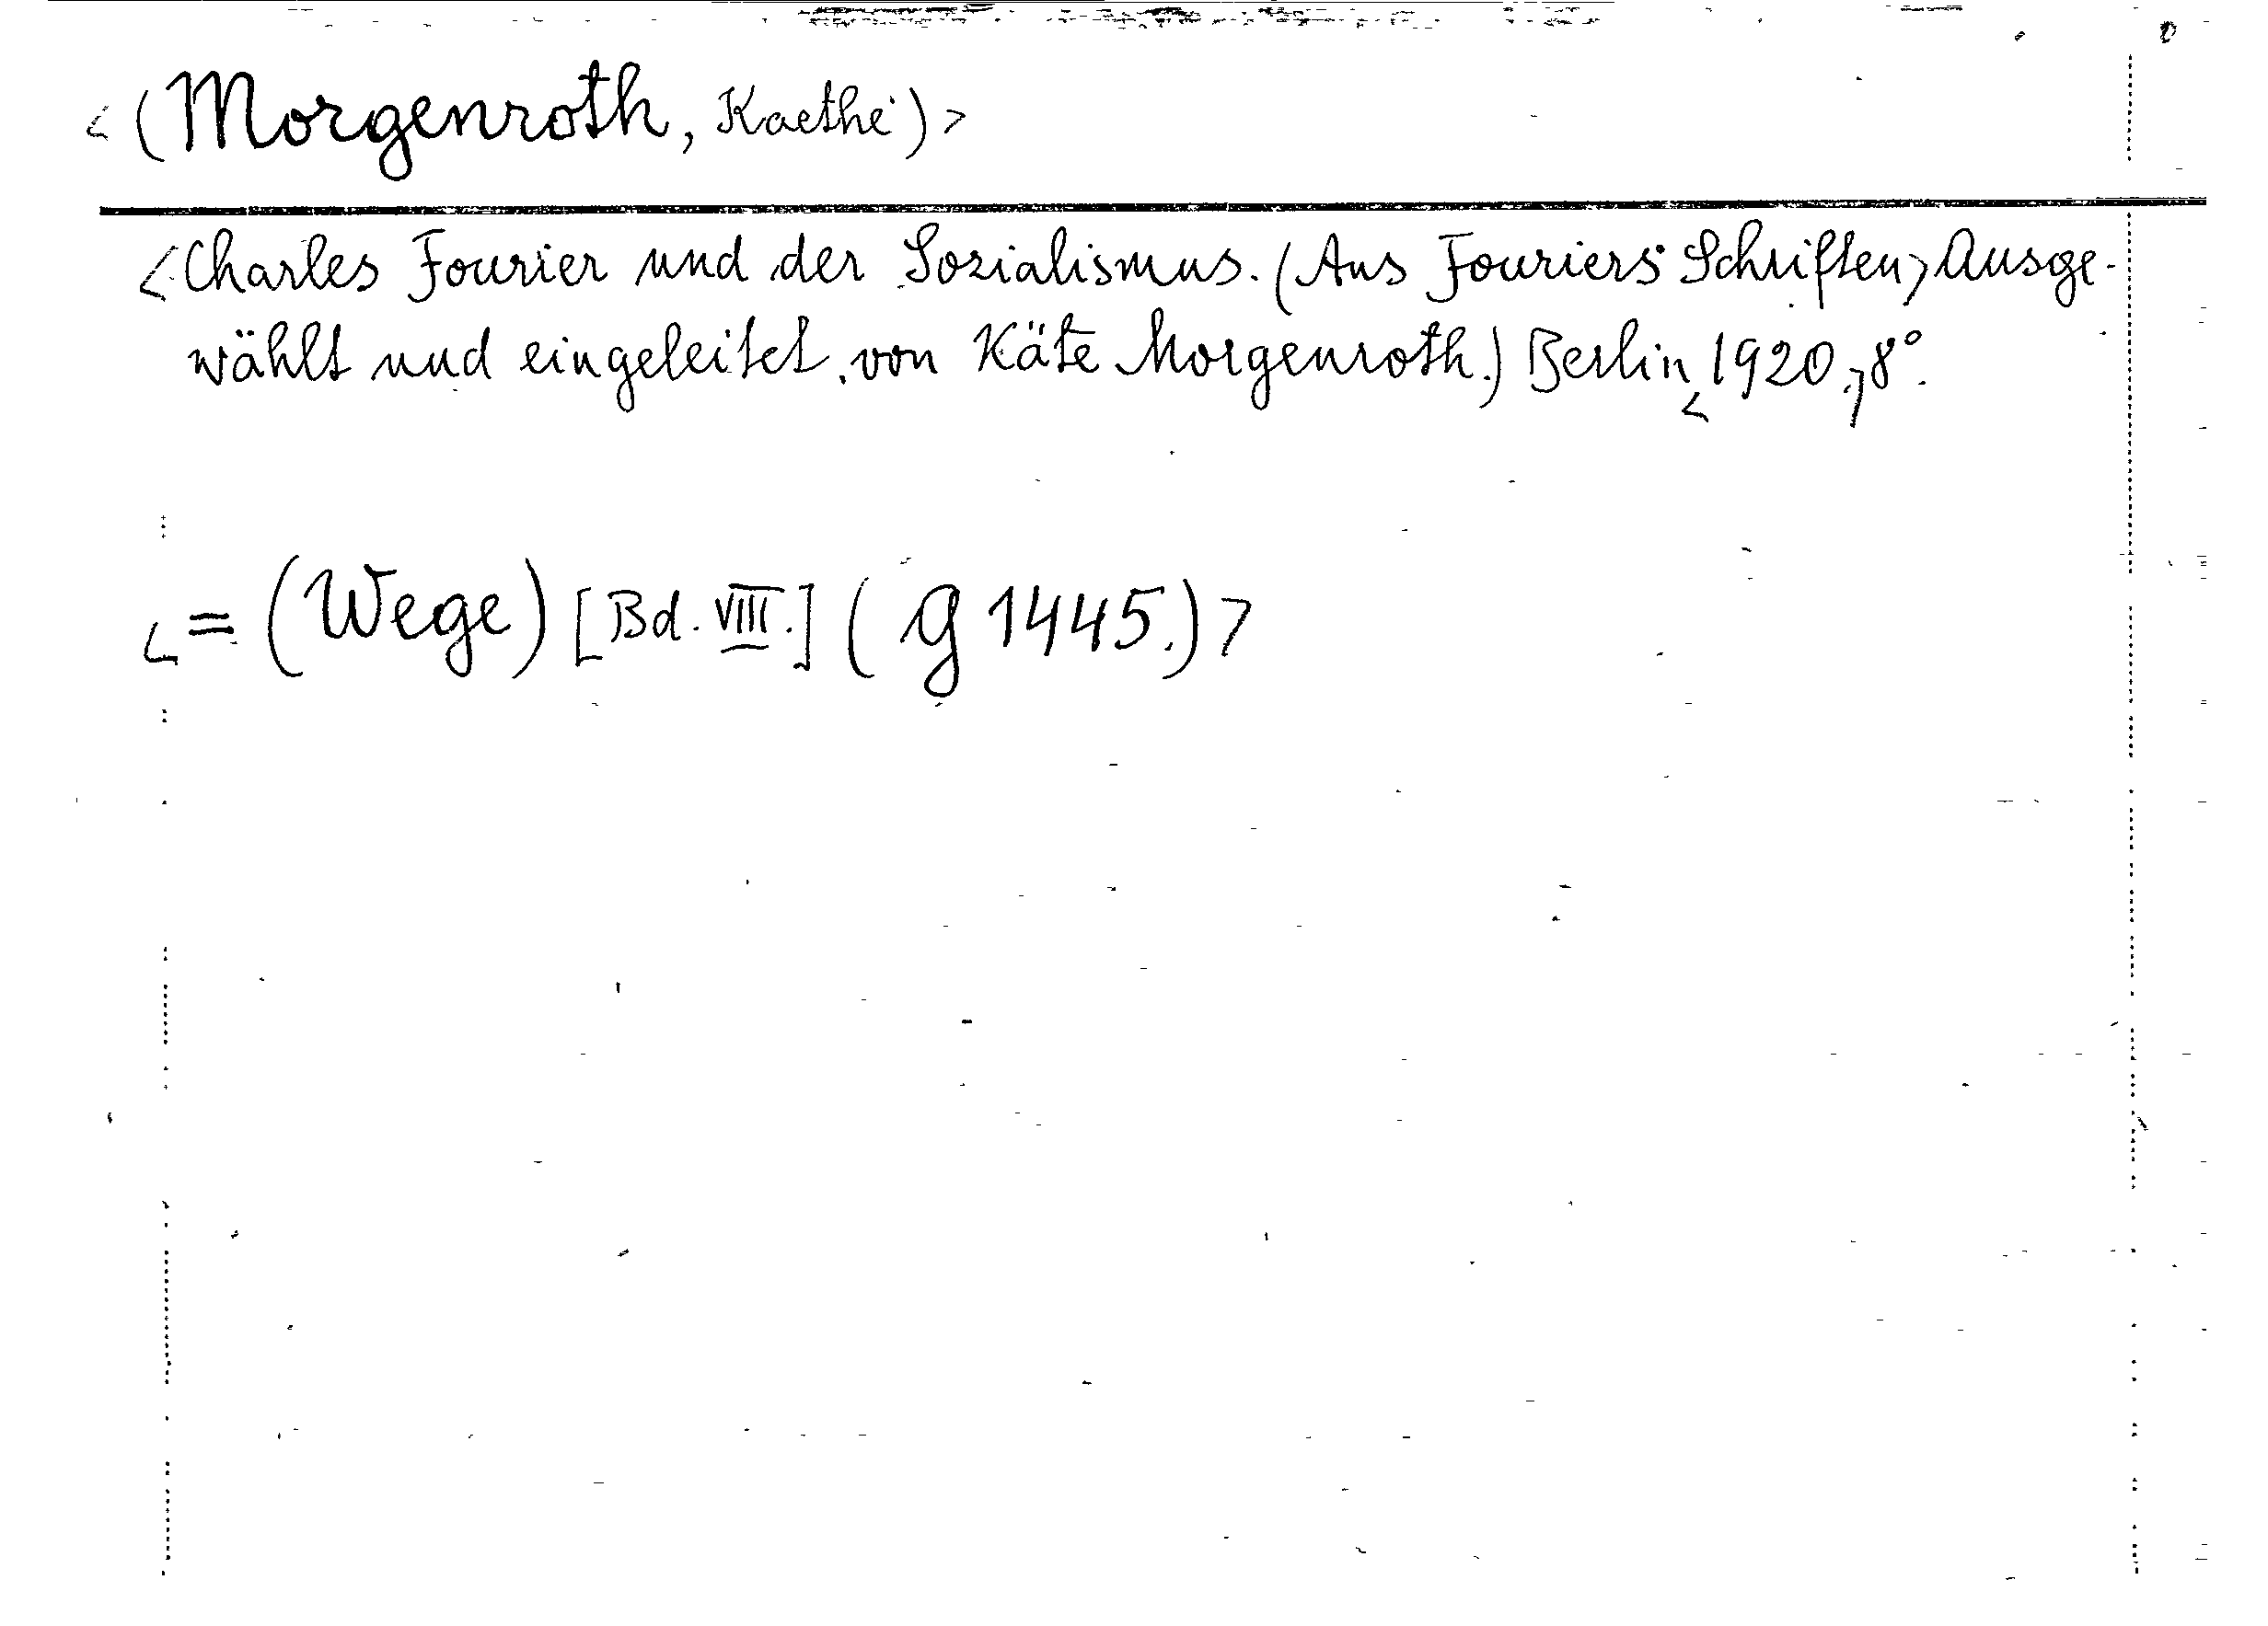 <(Morgenroth, Kaethe)>
<Charles Fourier und der Sozialismus. (Aus Fouriers Schriften> Ausge-
wählt und eingeleitet von Käte Morgenroth.) Berlin <1920.> 8°.
<= (Wege) [Bd. VIII.] (g 1445.)>